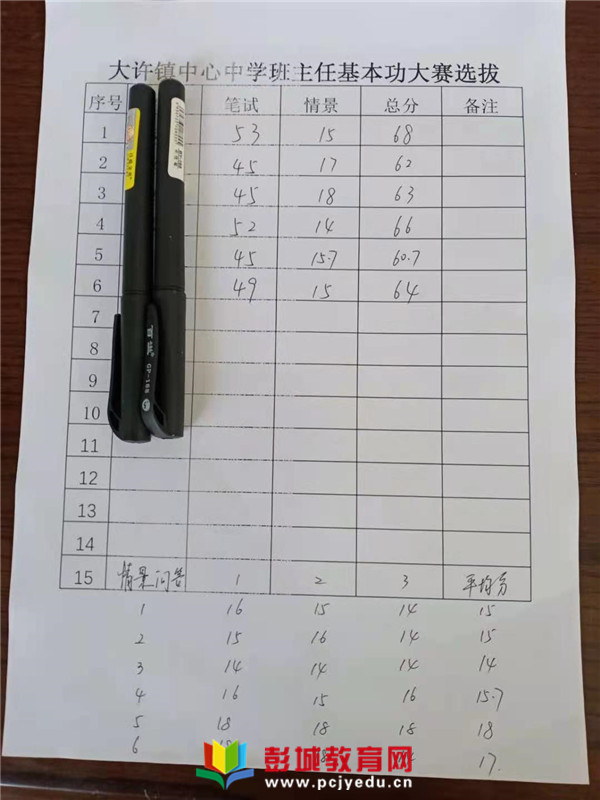 大许镇中心中学班主任基本功大赛选拔
序号 笔试 情景 总分 备注
1 53 15 68
2 45 17 62
3 45 18 63
4 52 14 66
5 45 15.7 60.7
6 49 15 64
7
8
9
10
11
12
13
14
15 情景问答 1 2 3 平均分
1 16 15 14 15
2 15 16 14 15
3 14 14 14 14
4 16 15 16 15.7
5 18 18 18 18
6 17.
彭城教育网
www.pcjyedu.cn